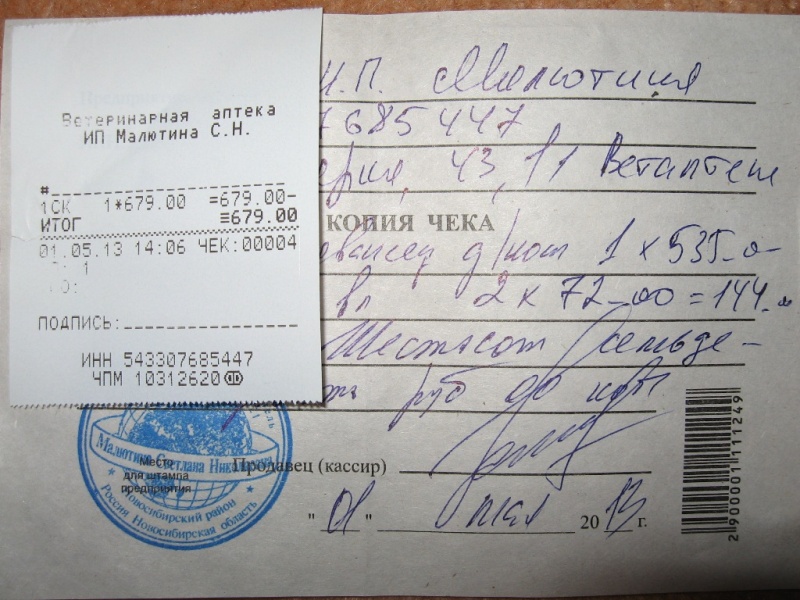 Ветеринарная аптека
ИП Малютина С.Н.
#
1СК 1*679.00 =679.00-
ИТОГ ≡679.00
01.05.13 14:06 ЧЕК:00004
1
ПОДПИСЬ:
ИНН 543307685447
ЧПМ 10312620
И.П. Малютина
7685447
43, 11 Ветаптека
КОПИЯ ЧЕКА
д/кош 1 x 535-0-
вл 2 x 72-00=144.
Шестьсот семьде-
руб 00 коп
Малютина Светлана Николаевна
Место
для штампа
предприятия
Новосибирский район
Россия Новосибирская область
Продавец (кассир)
"01" мая 2013 г.
2900001111249